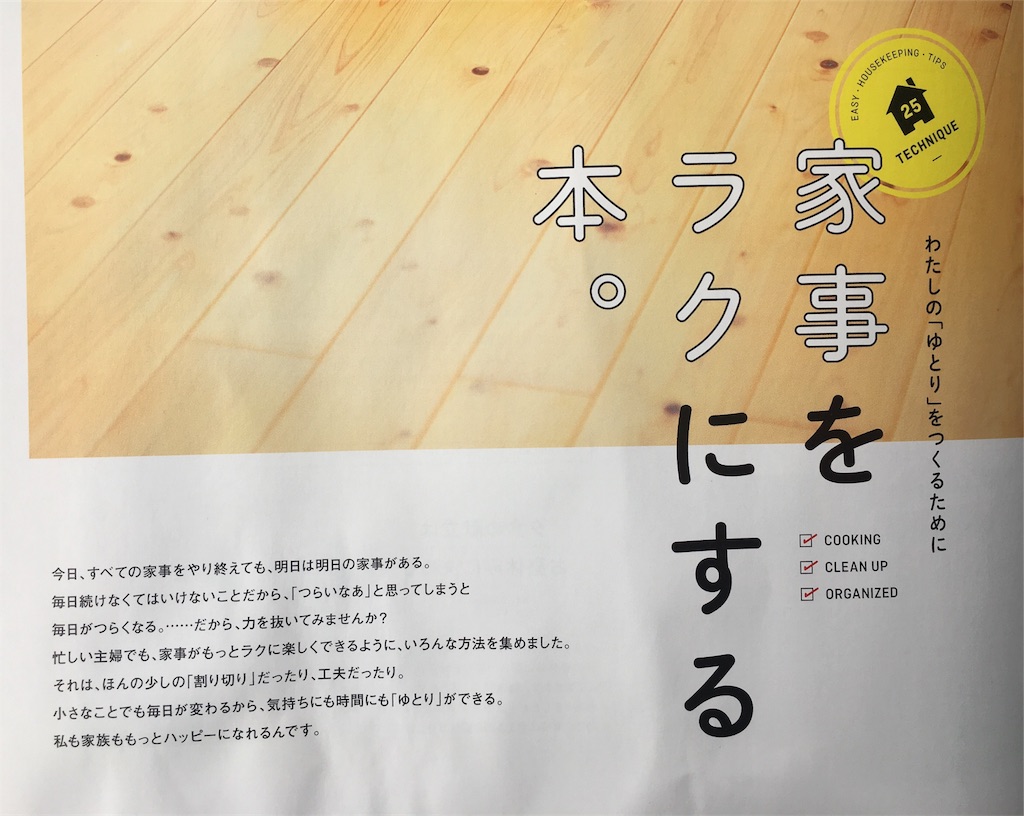 EASY・HOUSEKEEPING・TIPS
25
TECHNIQUE
家事を
ラクにする
本。
わたしの「ゆとり」をつくるために
COOKING
CLEAN UP
ORGANIZED
今日、すべての家事をやり終えても、明日は明日の家事がある。
毎日続けなくてはいけないことだから、「つらいなあ」と思ってしまうと
毎日がつらくなる。……だから、力を抜いてみませんか?
忙しい主婦でも、家事がもっとラクに楽しくできるように、いろんな方法を集めました。
それは、ほんの少しの「割り切り」だったり、工夫だったり。
小さなことでも毎日が変わるから、気持ちにも時間にも「ゆとり」ができる。
私も家族ももっとハッピーになれるんです。